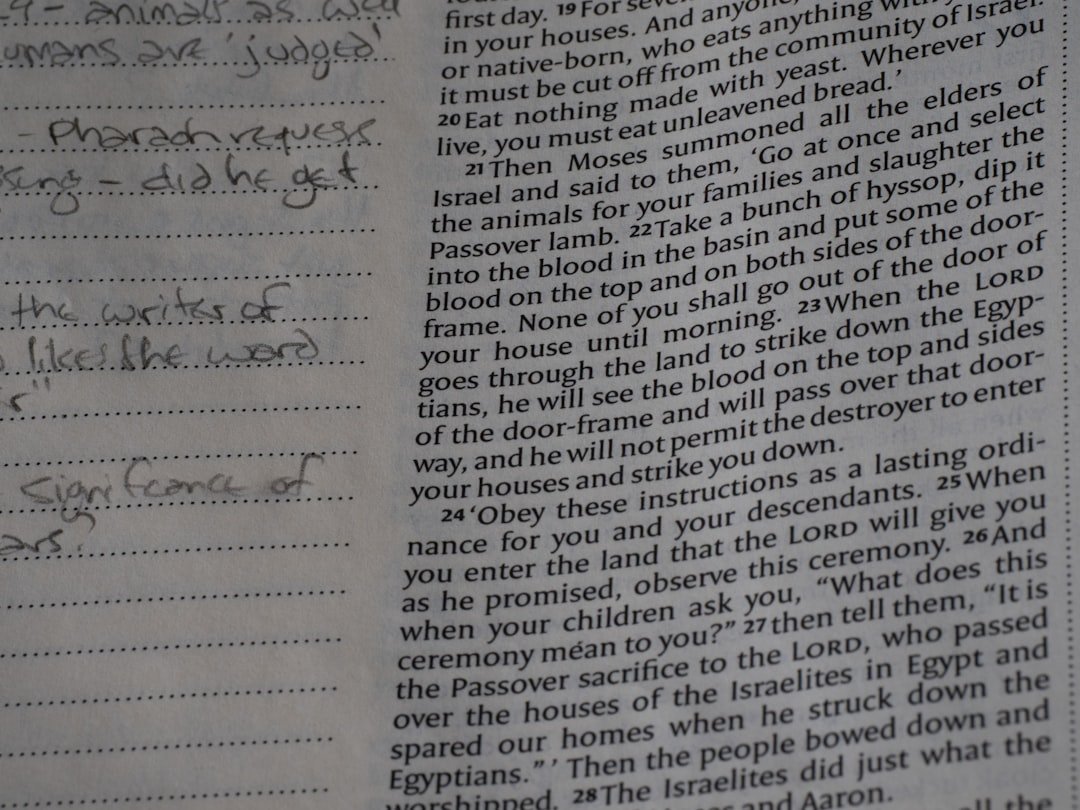 animals as well
umans are 'judged'
- Pharaoh requess
sing - did he get
the writer of
likes the word
r"
significance of
ars?
first day. 19 For seve
in your houses. And anyone,
or native-born, who eats anything with
it must be cut off from the community of Israel.
20 Eat nothing made with yeast. Wherever you
live, you must eat unleavened bread.'
21 Then Moses summoned all the elders of
Israel and said to them, 'Go at once and select
the animals for your families and slaughter the
Passover lamb. 22 Take a bunch of hyssop, dip it
into the blood in the basin and put some of the
blood on the top and on both sides of the door-
frame. None of you shall go out of the door of
your house until morning. 23 When the LORD
goes through the land to strike down the Egyp-
tians, he will see the blood on the top and sides
of the door-frame and will pass over that door-
way, and he will not permit the destroyer to enter
your houses and strike you down.
24 'Obey these instructions as a lasting ordi-
nance for you and your descendants. 25 When
you enter the land that the LORD will give you
as he promised, observe this ceremony. 26 And
when your children ask you, "What does this
ceremony mean to you?" 27 then tell them, "It is
the Passover sacrifice to the LORD, who passed
over the houses of the Israelites in Egypt and
spared our homes when he struck down the
Egyptians." ' Then the people bowed down and
worshipped. 28 The Israelites did just what the
and Aaron.
all the